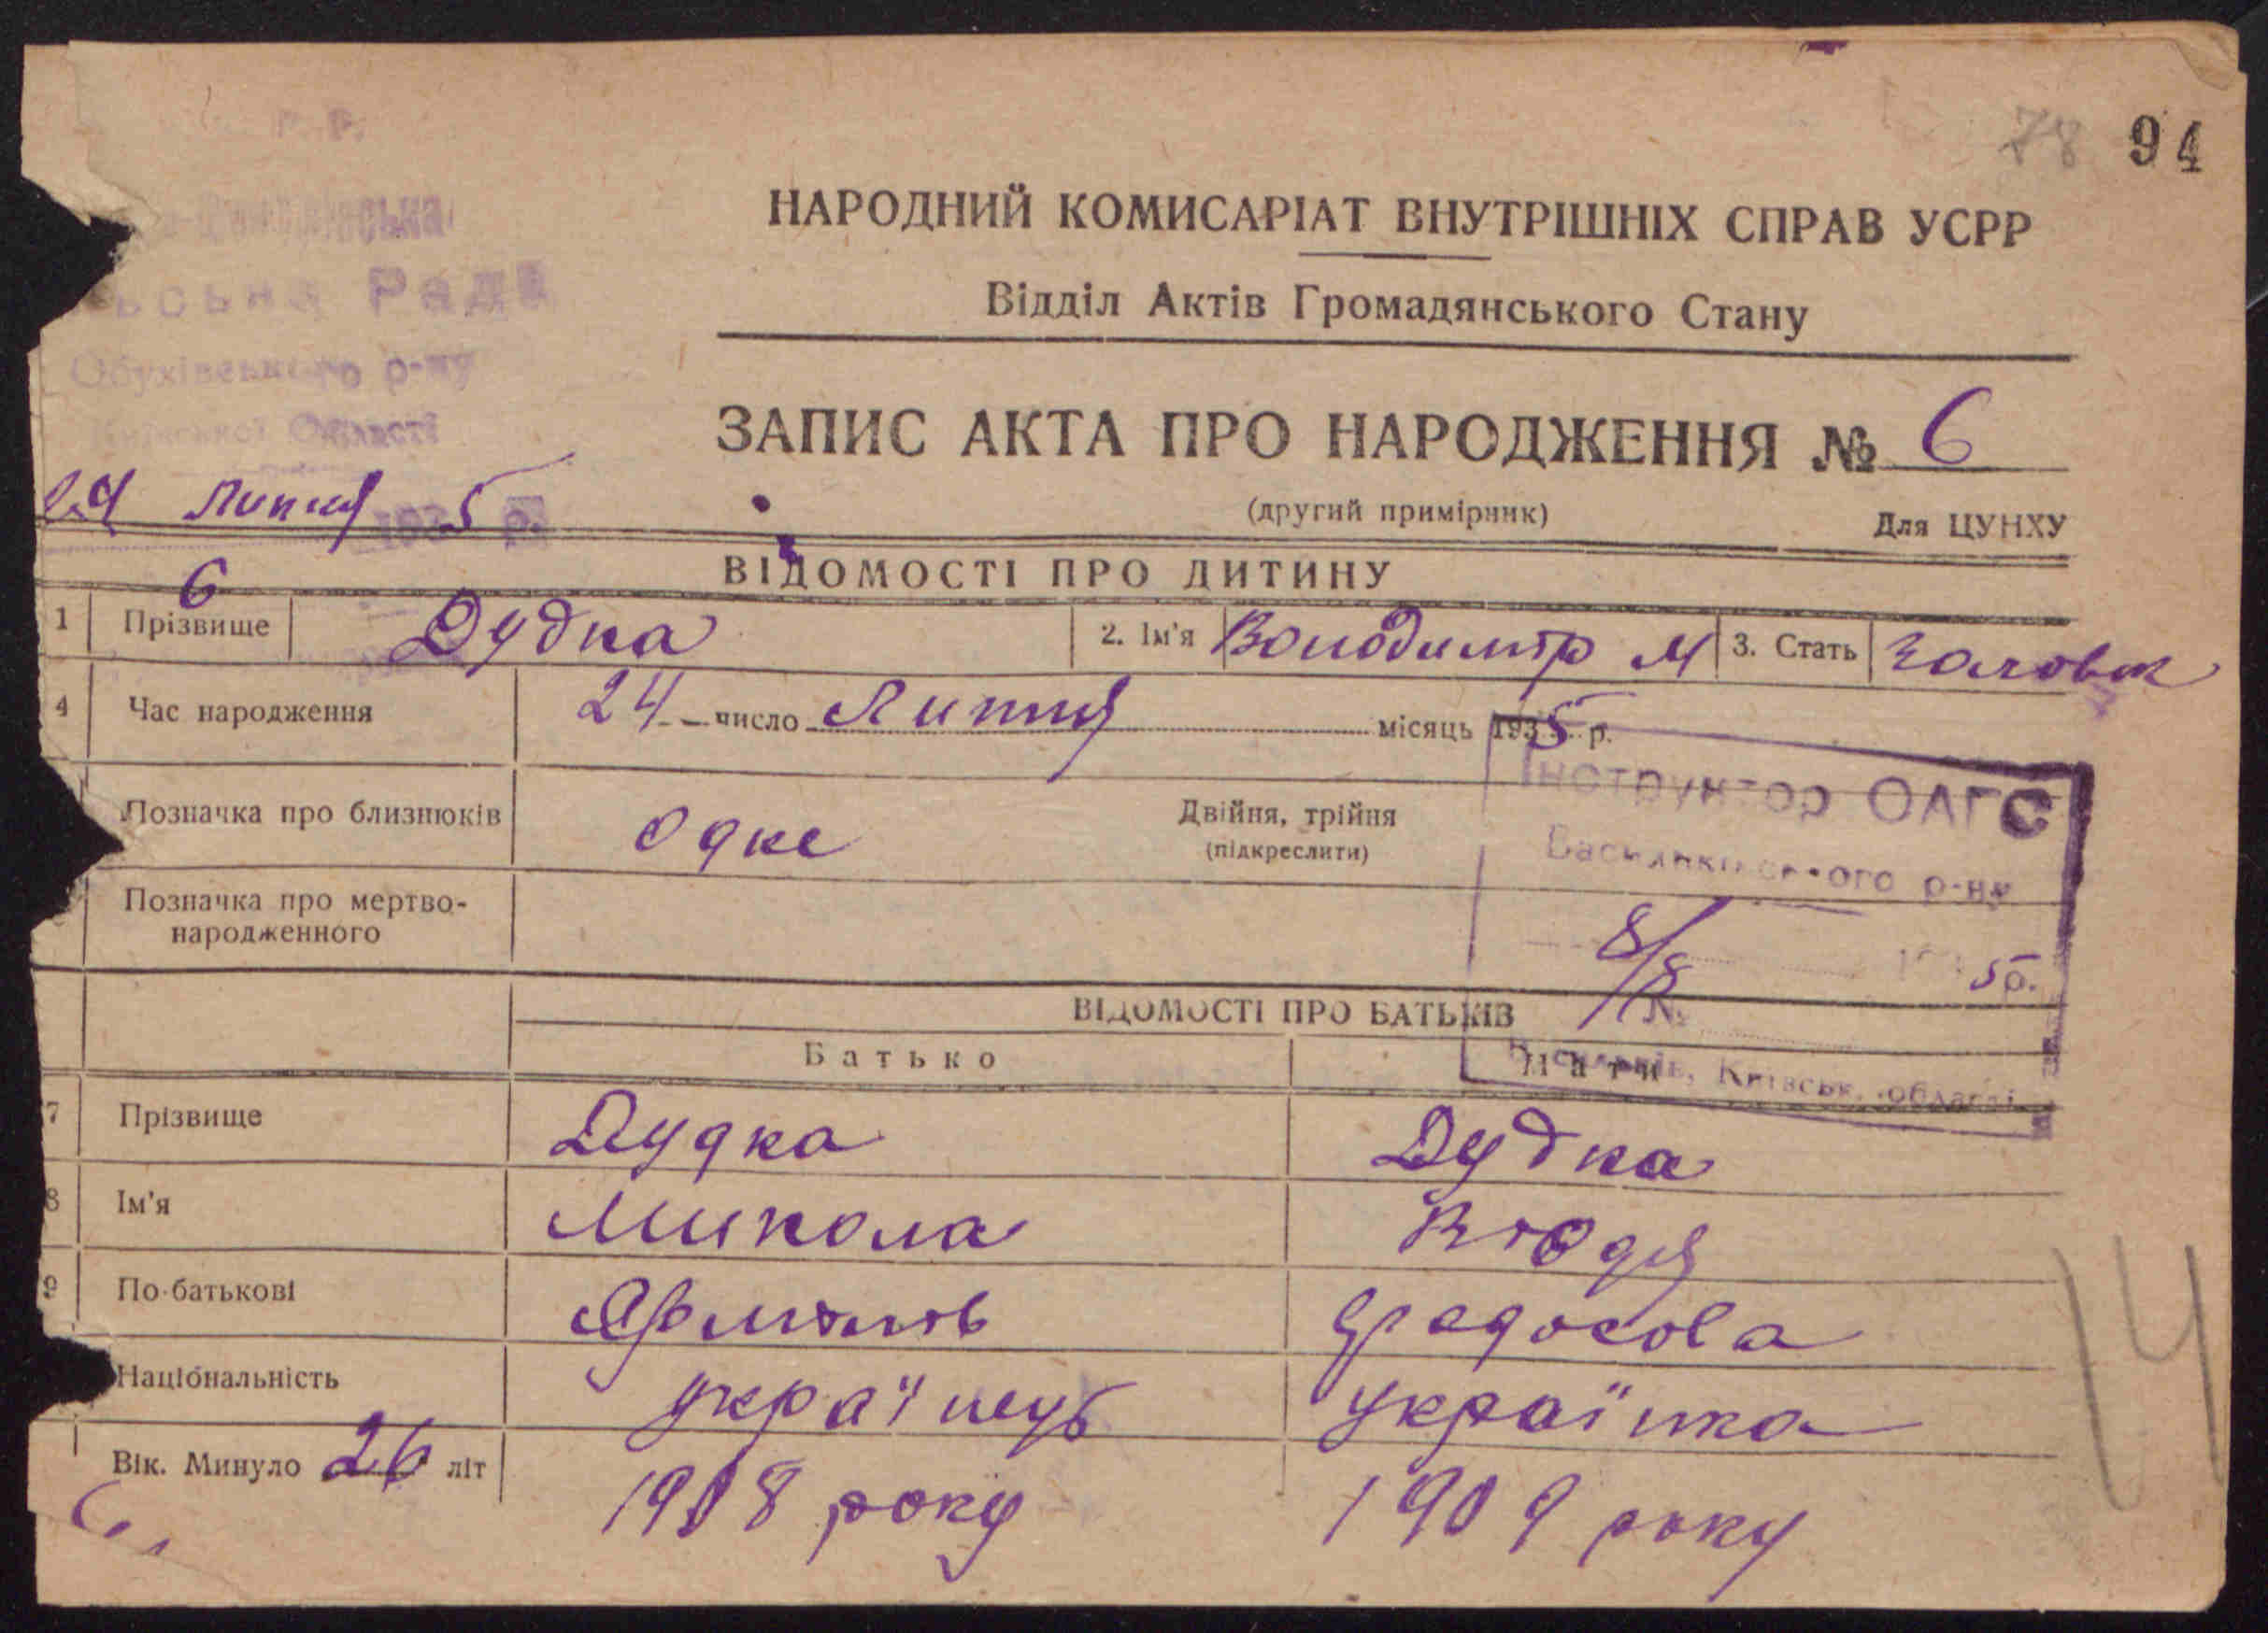 78 94
НАРОДНИЙ КОМИСАРІАТ ВНУТРІШНІХ СПРАВ УСРР
Рада
Відділ Актів Громадянського Стану
Обухівського р-ну
Київської Області
ЗАПИС АКТА ПРО НАРОДЖЕННЯ № 6
24 Липня 1935 р.
(другий примірник)
Для ЦУНХУ
6
ВІДОМОСТІ ПРО ДИТИНУ
1 Прізвище Дудка 2. Ім'я Володимір М 3. Стать
4 Час народження 24 число Липня місяць 1935 р.
Інструктор ОАГС
Позначка про близнюків Одне Двійня, трійня
(підкреслити)
Васильківського р-ну
Позначка про мертво-
народженного
8/8 5 р.
№
ВІДОМОСТІ ПРО БАТЬКІВ
Батько Мати
Васильків, Київськ. області
7 Прізвище Дудка Дудка
8 Ім'я Микола
9 По-батькові
Національність українець українка
Вік. Минуло 26 літ 1908 року 1909 року
14